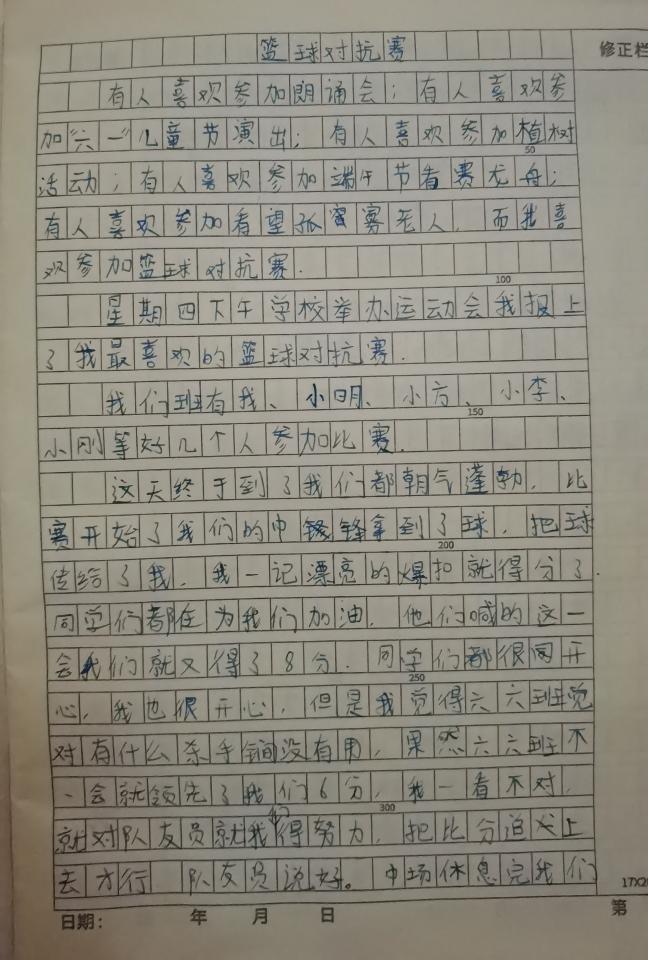 篮球对抗赛
修正栏
有人喜欢参加朗诵会；有人喜欢参
加“六一”儿童节演出；有人喜欢参加植树
50
活动；有人喜欢参加端午节看赛龙舟；
有人喜欢参加看望孤寡老人，而我喜
欢参加篮球对抗赛.
100
星期四下午学校举办运动会我报上
了我最喜欢的篮球对抗赛.
我们班有我、小明、小方、小李、
150
小刚等好几个人参加比赛.
这天终于到了我们都朝气蓬勃，比
赛开始了我们的中锋拿到了球，把球
200
传给了我，我一记漂亮的爆扣就得分了.
同学们都在为我们加油，他们喊的这一
会我们就又得了8分.同学们都很开
250
心，我也很开心，但是我觉得六六班觉
对有什么杀手锏没有用，果然六六班不
一会就领先了我们6分，我一看不对，
300
就对队友员就我们得努力，把比分追上
去才行 队友员说好。中场休息完我们
17X20
日期： 年 月 日 第